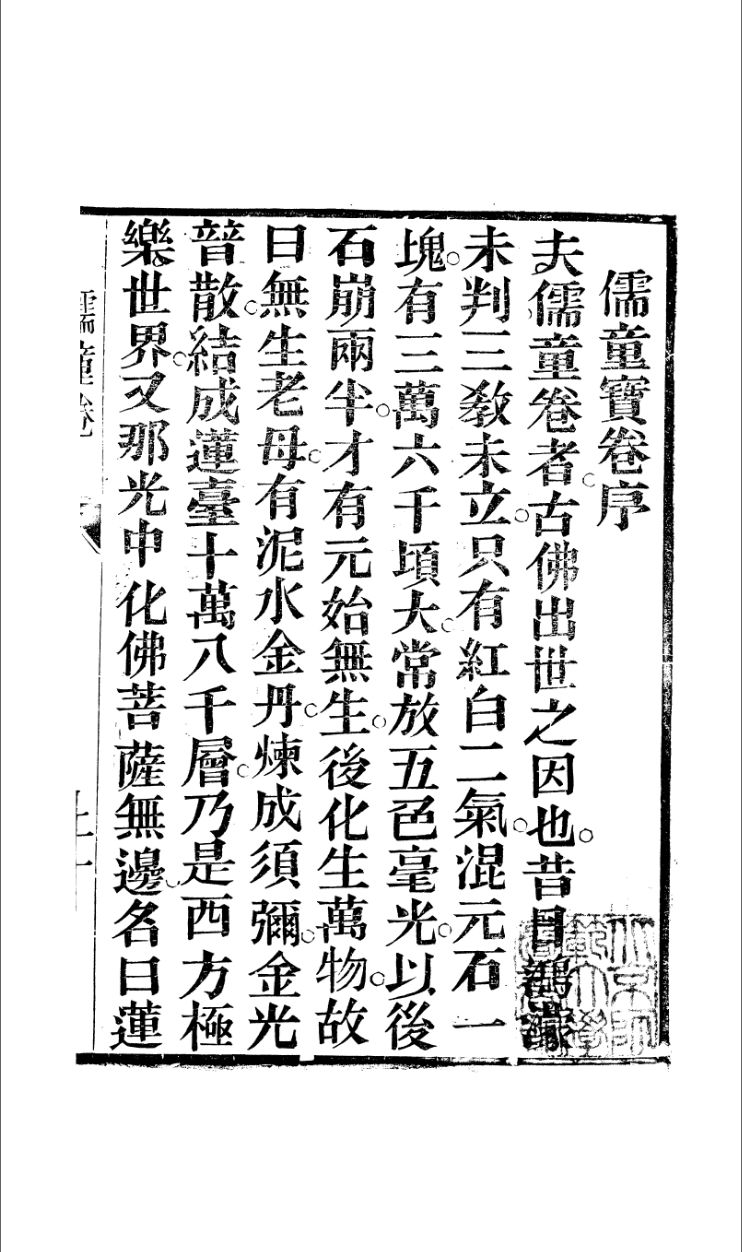 儒童寶卷序
夫儒童卷者。古佛出世之因也。昔日鴻濛
未判三教未立。只有紅白二氣。混元石一
塊。有三萬六千頃大。常放五色毫光。以後
石崩兩半。才有元始無生。後化生萬物。故
曰無生老母。有泥水金丹。煉成須彌。金光
普散。結成蓮臺十萬八千層。乃是西方極
樂世界。又那光中化佛菩薩無邊。名曰蓮
儒童卷
上一